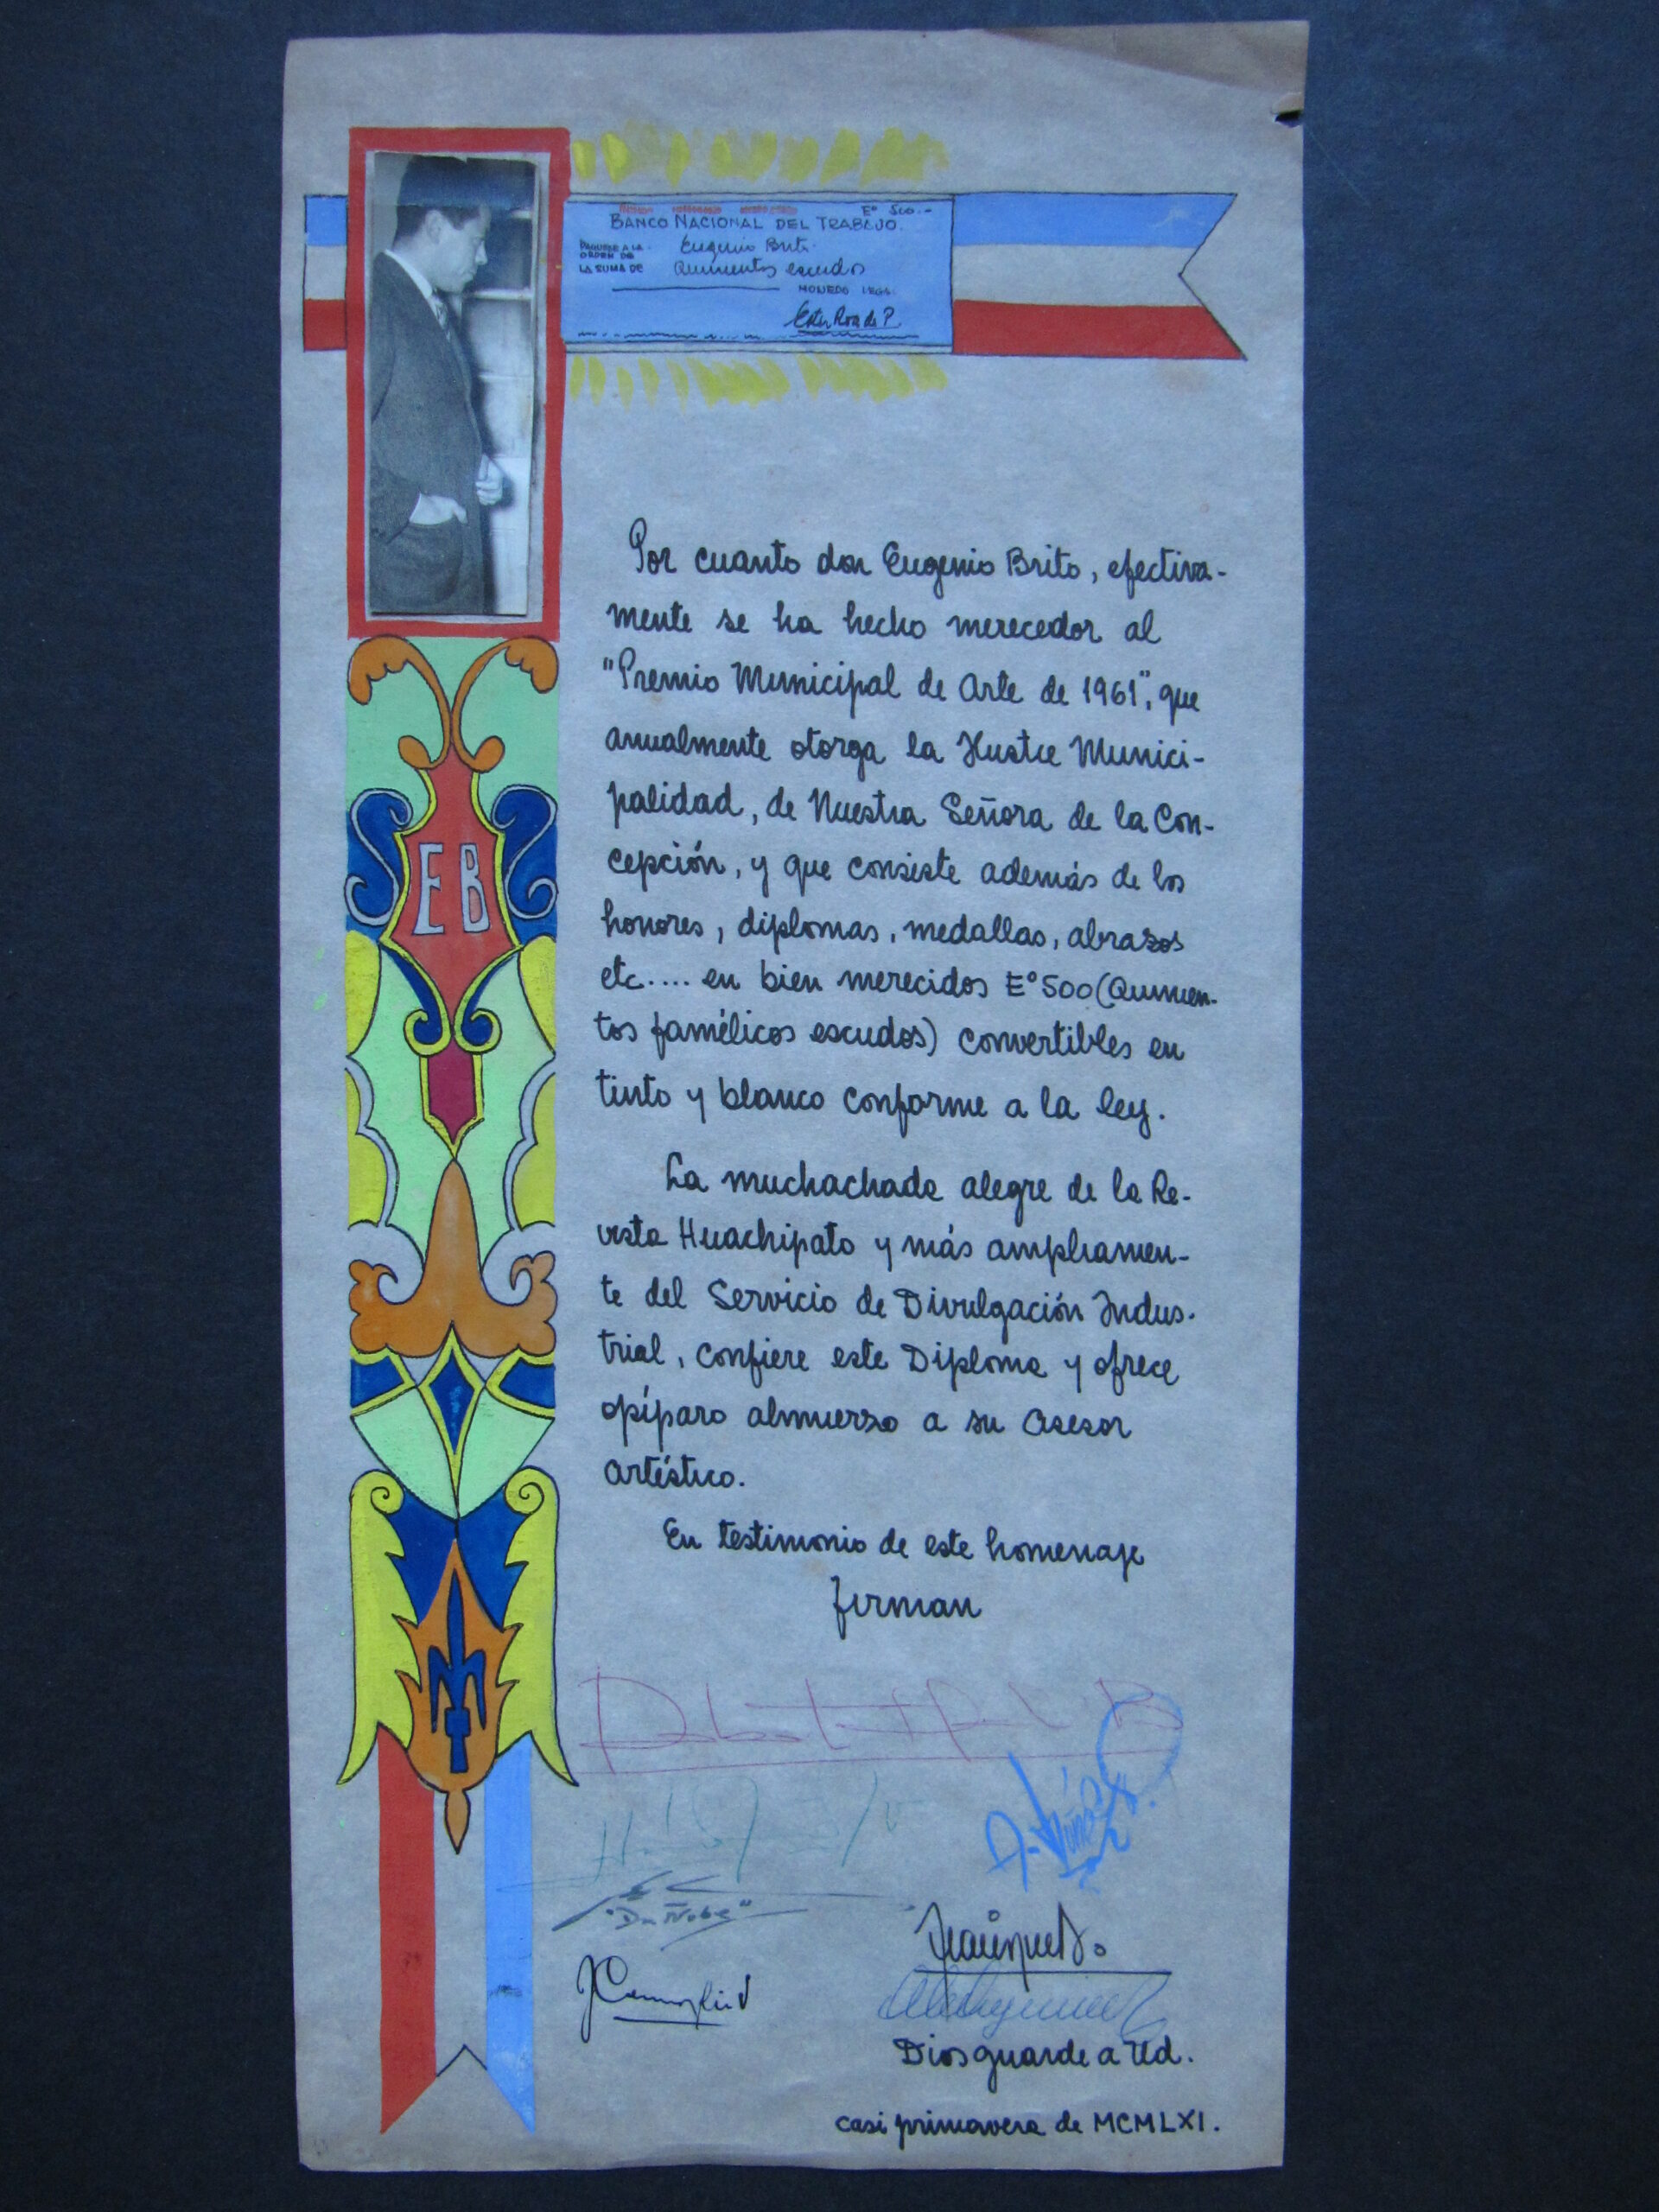 E° 500.-
BANCO NACIONAL DEL TRABAJO.
PAGUESE A LA
ORDEN DE
Eugenio Brito
LA SUMA DE Quinientos escudos
MONEDO LEGA
Ester Roa de P.
EB
Por cuanto don Eugenio Brito, efectiva-
mente se ha hecho merecedor al
"Premio Municipal de Arte de 1961", que
anualmente otorga la Ilustre Munici-
palidad, de Nuestra Señora de la Con-
cepción, y que consiste además de los
honores, diplomas, medallas, abrazos
etc.... en bien merecidos E° 500 (Quinien-
tos famélicos escudos) convertibles en
tinto y blanco conforme a la ley.
La muchachada alegre de la Re-
vista Huachipato y más ampliamen-
te del Servicio de Divulgación Indus-
trial, confiere este Diploma y ofrece
opíparo almuerzo a su Asesor
artístico.
En testimonio de este homenaje
firman
Dios guarde a Ud.
casi primavera de MCMLXI.